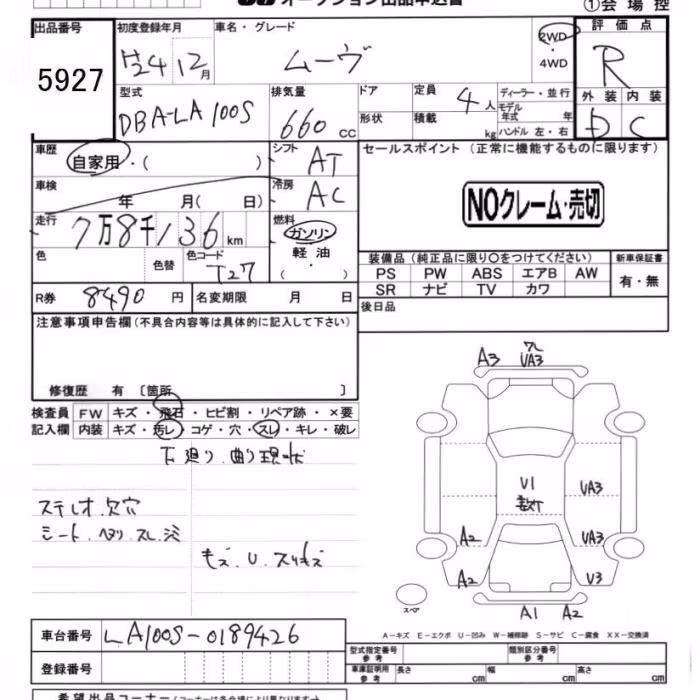 オークション出品申込書
①会場控
出品番号 5927
初度登録年月 H24 12月
車名・グレード ムーヴ
2WD ・ 4WD
評価点 R
外装 D 内装 C
型式 DBA-LA100S
排気量 660 cc
ドア
形状
定員 4人
積載 kg
ディーラー・並行
モデル年式 年
ハンドル 左・右
車歴 自家用・( )
シフト AT
セールスポイント (正常に機能するものに限ります)
車検 年 月( 日)
冷房 AC
NOクレーム・売切
走行 7万8千136km
燃料 ガソリン 軽油 ( ・ )
色 色替 色コード T27
装備品 (純正品に限り○をつけてください)
新車保証書
PS PW ABS エアB AW
SR ナビ TV カワ
有・無
R券 8490円 名変期限 月 日
後日品
注意事項申告欄(不具合内容等は具体的に記入して下さい)
修復歴 有 〔箇所 〕
検査員 FW キズ・飛石・ヒビ割・リペア跡・×要
記入欄 内装 キズ・汚レ・コゲ・穴・スレ・キレ・破レ
下廻り.曲り現状
ステレオ.欠穴
シート.ヘタリ.スレ.シミ
キズ.U.スリキズ
A3
UA3
U1
UA3
A2
UA3
A2
U3
スペア
A1 A2
A-キズ E-エクボ U-凹み W-補修跡 S-サビ C-腐食 XX-交換済
車台番号 LA100S-0189426
型式指定番号 参考
類別区分番号 参考
登録番号
車庫証明用 参考 長さ cm 幅 cm 高さ cm
希望出品コーナー